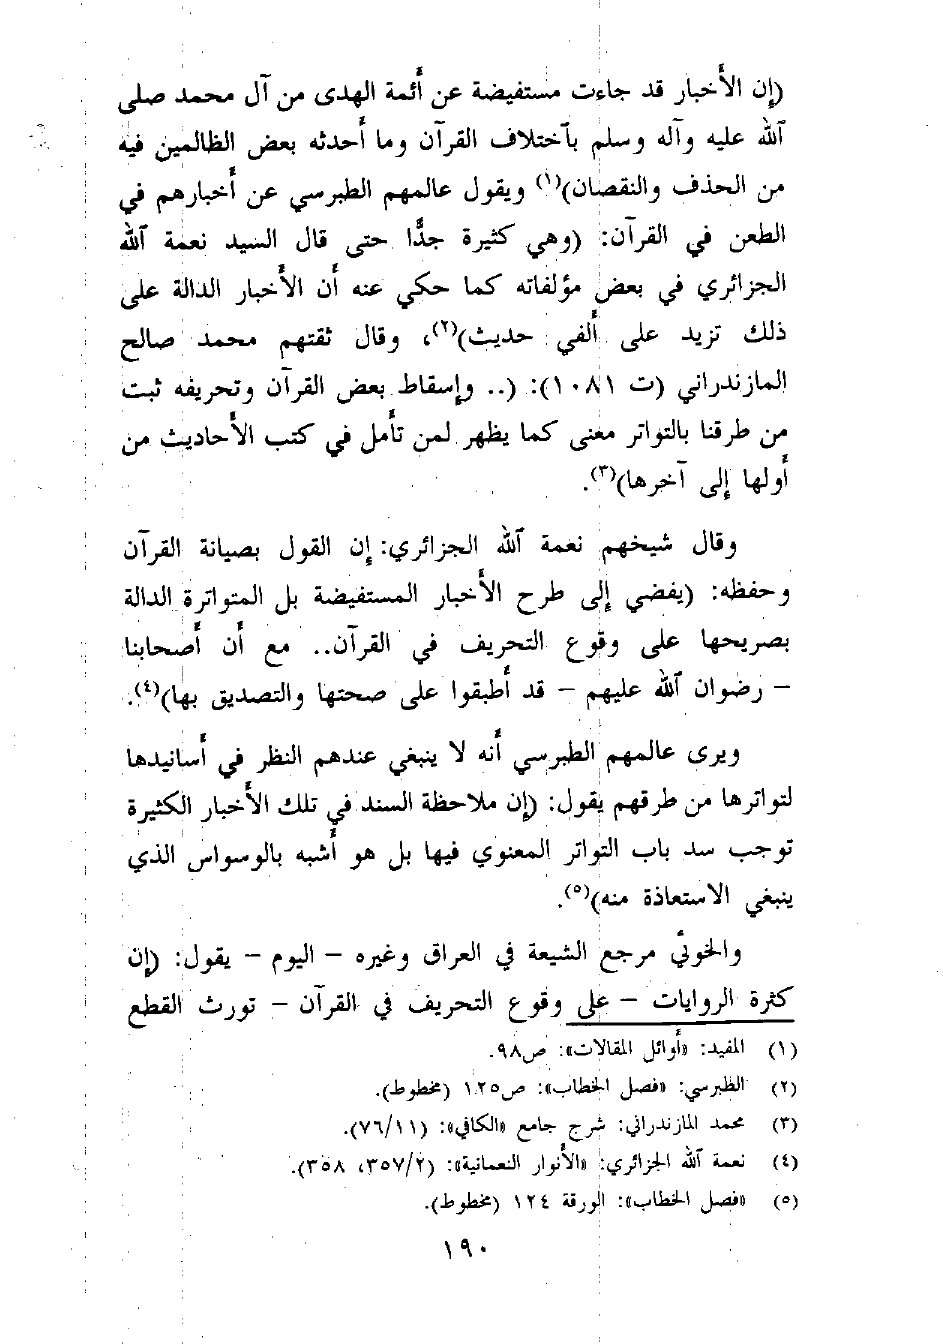 (إن الأخبار قد جاءت مستفيضة عن أئمة الهدى من آل محمد صلى
الله عليه وآله وسلم بآختلاف القرآن وما أحدثه بعض الظالمين فيه
من الحذف والنقصان)(١) ويقول عالمهم الطبرسي عن أخبارهم في
الطعن في القرآن: (وهي كثيرة جدًّا حتى قال السيد نعمة الله
الجزائري في بعض مؤلفاته كما حكي عنه أن الأخبار الدالة على
ذلك تزيد على ألفي حديث)(٢)، وقال ثقتهم محمد صالح
المازندراني (ت ١٠٨١): (.. وإسقاط بعض القرآن وتحريفه ثبت
من طرقنا بالتواتر معنى كما يظهر لمن تأمل في كتب الأحاديث من
أولها إلى آخرها)(٣).
وقال شيخهم نعمة الله الجزائري: إن القول بصيانة القرآن
وحفظه: (يفضي إلى طرح الأخبار المستفيضة بل المتواترة الدالة
بصريحها على وقوع التحريف في القرآن.. مع أن أصحابنا
– رضوان الله عليهم – قد أطبقوا على صحتها والتصديق بها)(٤).
ويرى عالمهم الطبرسي أنه لا ينبغي عندهم النظر في أسانيدها
لتواترها من طرقهم يقول: (إن ملاحظة السند في تلك الأخبار الكثيرة
توجب سد باب التواتر المعنوي فيها بل هو أشبه بالوسواس الذي
ينبغي الاستعاذة منه)(٥).
والخوئي مرجع الشيعة في العراق وغيره – اليوم – يقول: (إن
كثرة الروايات – على وقوع التحريف في القرآن – تورث القطع
(١) المفيد: «أوائل المقالات»: ص٩٨.
(٢) الطبرسي: «فصل الخطاب»: ص١٢٥ (مخطوط).
(٣) محمد المازندراني: شرح جامع «الكافي»: (٧٦/١١).
(٤) نعمة الله الجزائري: «الأنوار النعمانية»: (٣٥٧/٢، ٣٥٨).
(٥) «فصل الخطاب»: الورقة ١٢٤ (مخطوط).
١٩٠